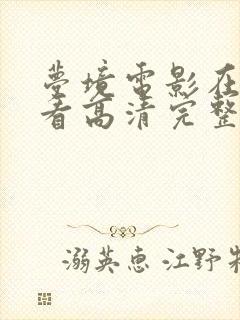 夢境電影在
看高清完整
溺英惠 江野